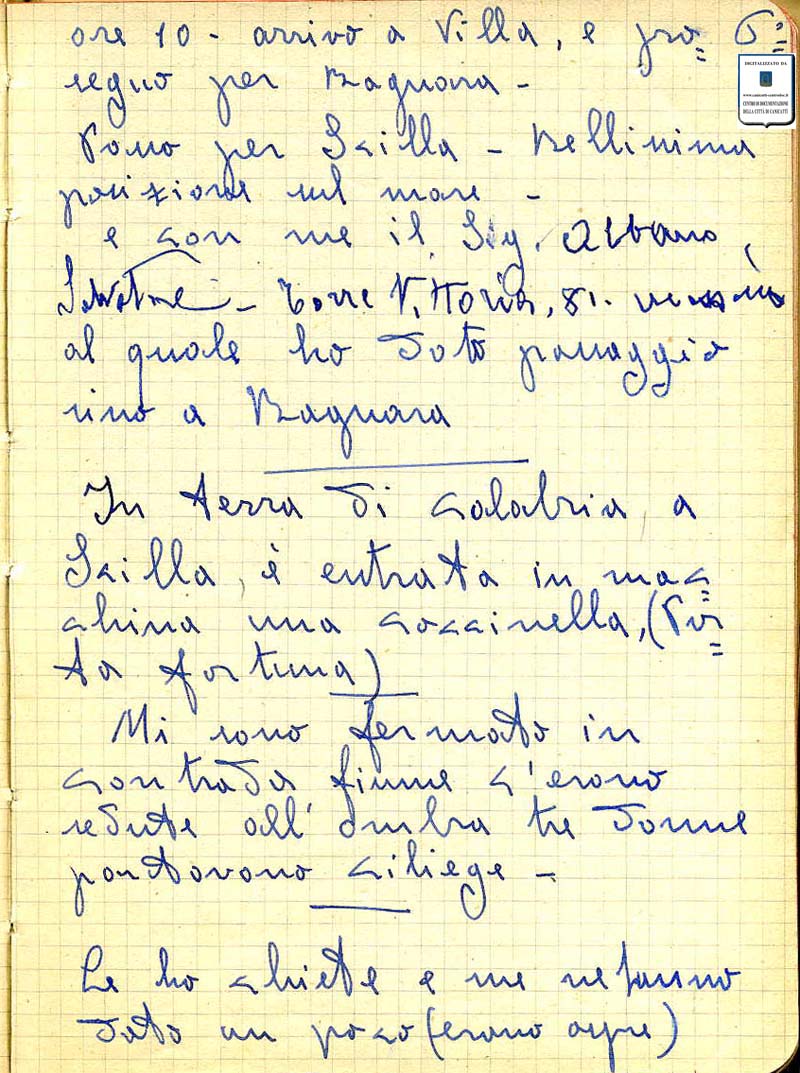 ore 10 - arrivo a Villa, e pro= 6=
seguo per Bagnara -
DIGITALIZZATO DA
www.canicatti-centrodoc.it
CENTRO DI DOCUMENTAZIONE
DELLA CITTÀ DI CANICATTÌ
Passo per Scilla - Bellissima
posizione sul mare -
e con me il Sig. Albano,
- Torre Vittoria, 81.
al quale ho dato passaggio
sino a Bagnara
In terra di Calabria a
Scilla, è entrata in mac=
china una coccinella, (Por=
ta fortuna)
Mi sono fermato in
contrada fiume c'erano
sedute all'ombra tre donne
portavano ciliege -
Le ho chieste e me ne hanno
dato un poco (erano aspre)